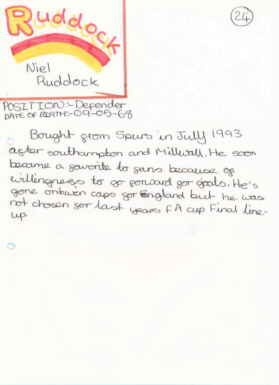 Ruddock
24
Niel
Ruddock
POSITION:- Defender
DATE OF BIRTH:- 09-05-68
Bought from Spurs in July 1993
after southampton and Millwall. He soon
became a favorite to fans because of
willingness to go forward for goals. He's
gone onto caps for England but he was
not chosen for last years F A cup Final line-
up